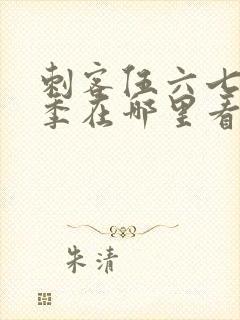 刺客伍六七
季在哪里看
朱清